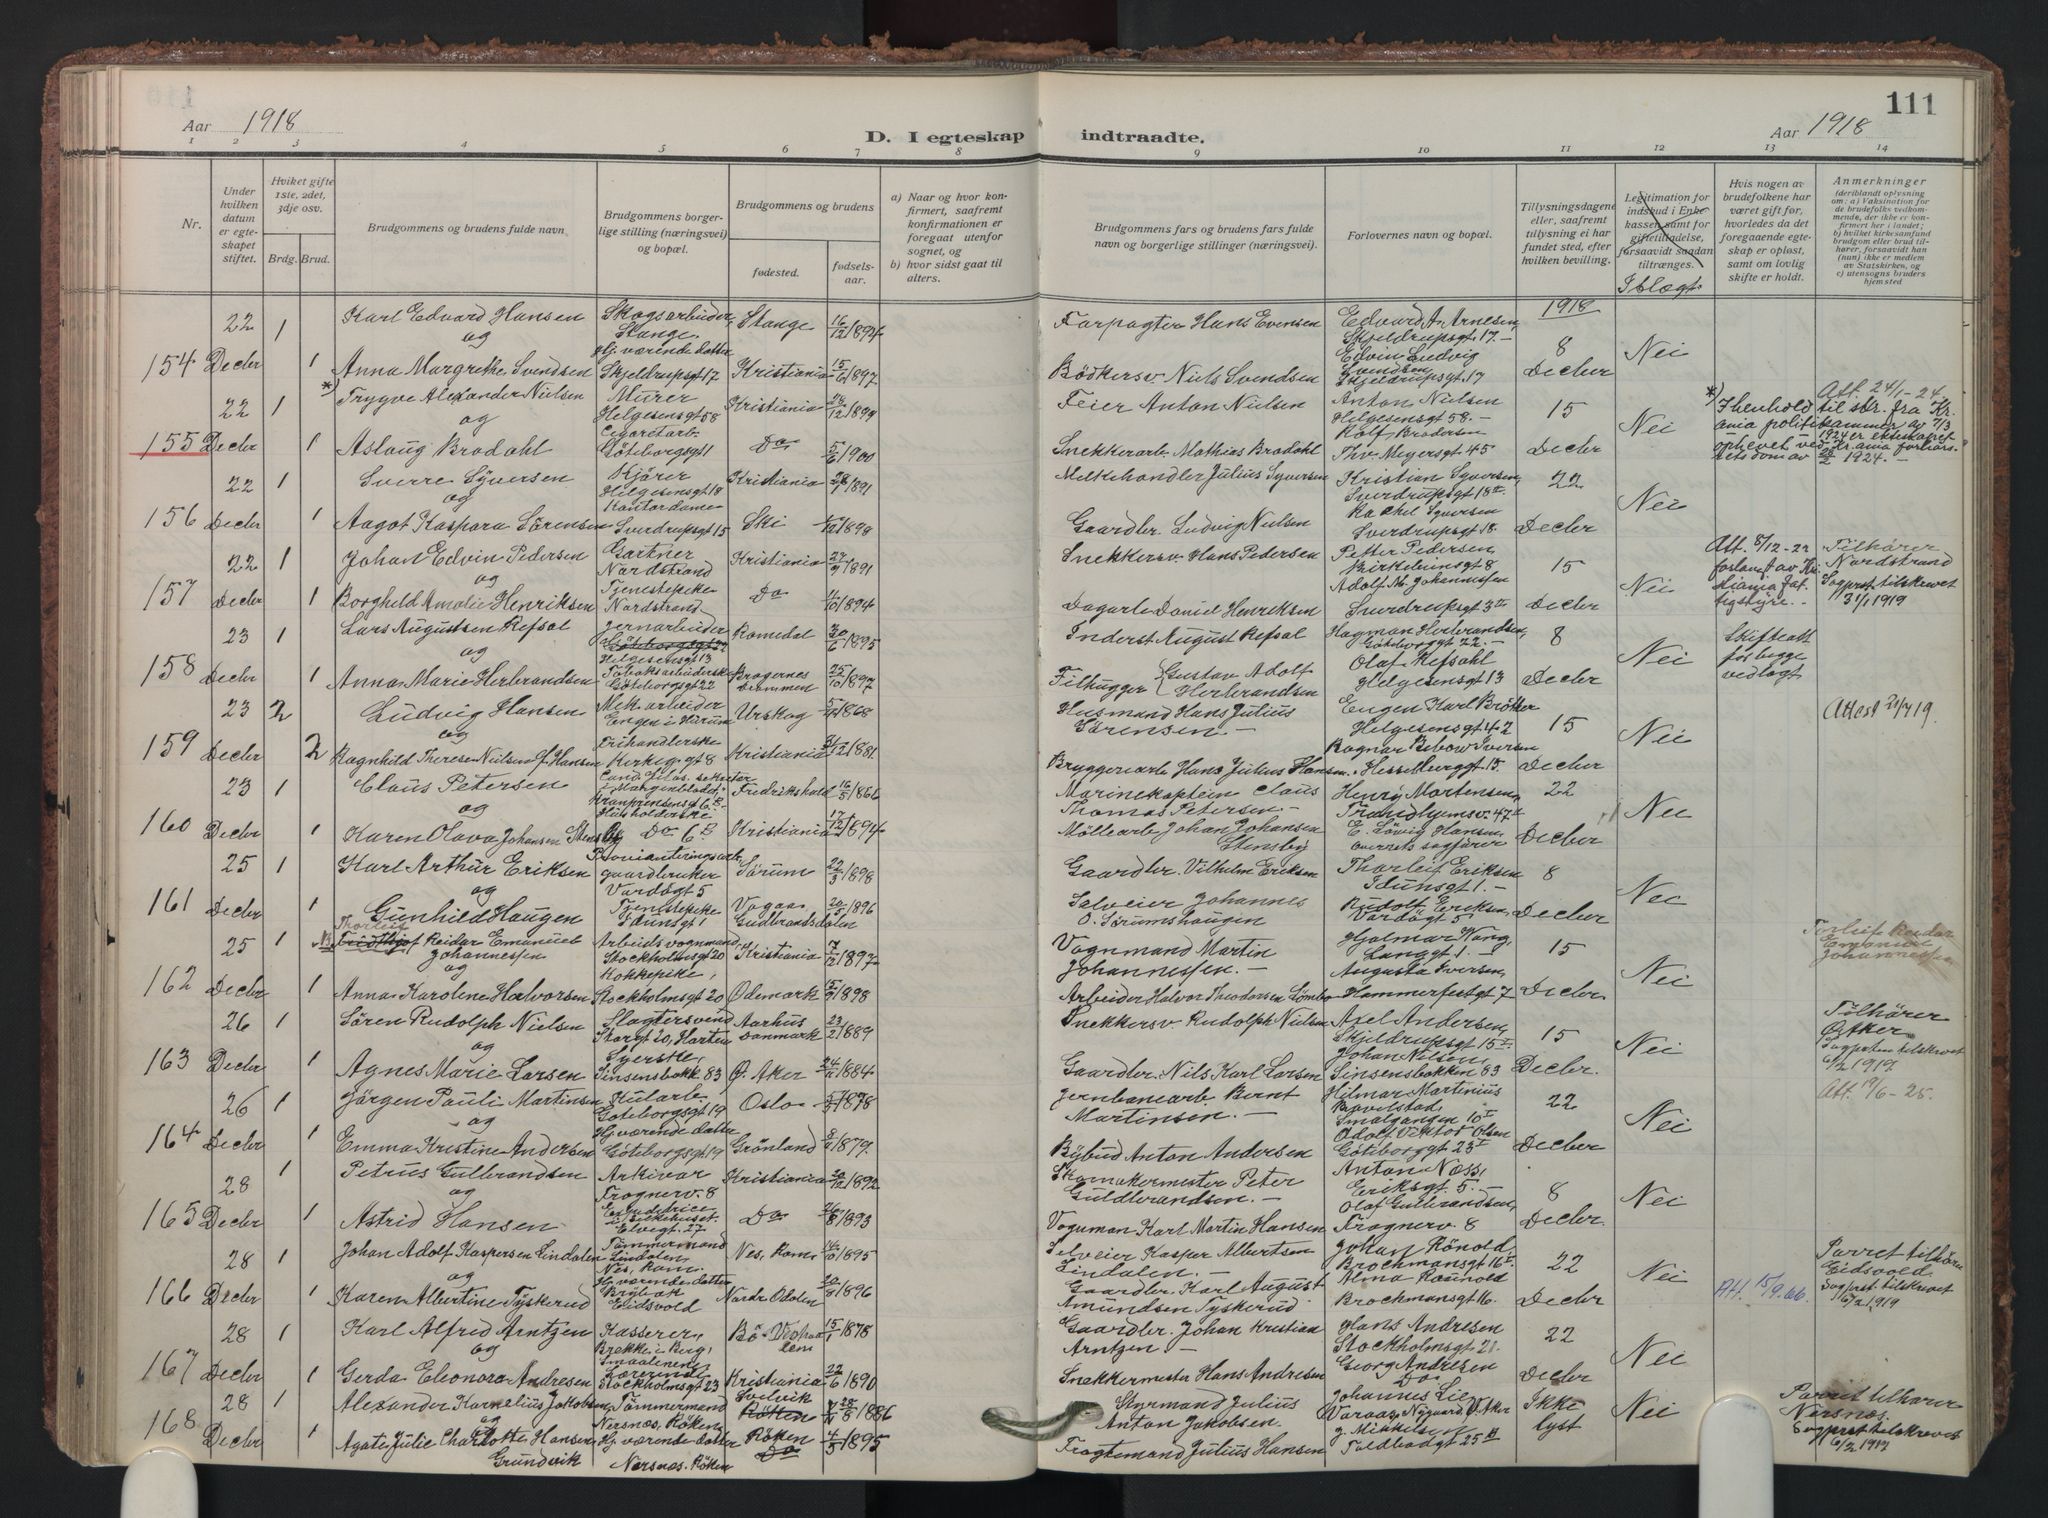 111
Aar 1918
D. I egteskap indtraadte.
Aar 1918
1 2 3 4 5 6 7 8 9 10 11 12 13 14
Nr.
Under hvilken datum er egteskapet stiftet.
Hviket gifte 1ste, 2det, 3dje osv.
Brdg. Brud.
Brudgommens og brudens fulde navn
Brudgommens borgerlige stilling (næringsvei) og bopæl.
Brudgommens og brudens
fødested.
fødselsaar.
a) Naar og hvor konfirmert, saafremt konfirmationen er foregaat utenfor sognet, og
b) hvor sidst gaat til alters.
Brudgommens fars og brudens fars fulde navn og borgerlige stillinger (næringsvei).
Forlovernes navn og bopæl.
Tillysningsdagene eller, saafremt tillysning ei har fundet sted, efter hvilken bevilling.
Legitimation for indskud i Enkekassen samt for giftetilladelse, forsaavidt saadan tiltrænges.
Hvis nogen av brudefolkene har været gift før, hvorledes da det foregaaende egteskap er opløst, samt om lovlig skifte er holdt.
Anmerkninger
(deriblandt oplysning om: a) Vaksination for de brudefolks vedkommende, der ikke er konfirmert her i landet; b) hvilket kirkesamfund brudgom eller brud tilhører, forsaavidt han (nun) ikke er medlem av Statskirken, og c) utensogns bruders hjemsted
1918
154 22 Decbr 1 Karl Edvard Hansen Skogsarbeider, Stange Stange 16/12 1894 Forpagter Hans Evensen Edvard A. Arnesen, Skjeldrupsgt. 17. 8 Decbr Nei
og
1 Anna Margrethe Svendsen Hj. værende datter Skjeldrupsgt 17 Kristiania 15/6 1897 Bödkersv. Niels Svendsen Edvin Ludvig Svendsen Skjeldrupsgt. 17
155 22 Decbr 1 *) Trygve Alexander Nielsen Murer Helgesensgt 58 Kristiania Feier Anton Nielsen Anton Nielsen Helgesensgt 58. 15 Decbr Nei *) I henhold til skr. fra Kr.ania politikammer av 7/3 1924 er ekteskapet ophevet ved Kr.ania forhørsrets dom av 1924. Att. 24/1-24.
og
1 Aslaug Bradahl Cigaretarb. Göteborgsgt 1 Do 5/6 1900 Snekkerarb. Mathias Bradahl Thv. Meyersgt 45
156 22 Decbr 1 Sverre Syversen Kjörer Helgesensgt 18 Kristiania 1891 Melkehandler Julius Syversen Kristian Syversen, Sverdrupsgt 18 22 Decbr Nei
og
1 Aagot Kaspara Sörensen Kontordame Sverdrupsgt 15 Ski 1898 Gaardbr. Ludvig Nielsen Rachel Syversen Sverdrupsgt 18.
157 22 Decbr 1 Johan Edvin Pedersen Gartner Nordstrand Kristiania 1891 Snekkersv. Hans Pedersen Petter Pedersen, Birkelunsgt 8 15 Decbr Nei Att. 8/12-22 Tilhörer Nordstrand Sogprst tilskrevet 31/1 1919
og
1 Borghild Amalie Henriksen Tjenestepike Nordstrand Do 1894 Dagarb. Daniel Henriksen Adolf M. Johannessen Sverdrupsgt 3
158 23 Decbr 1 Lars Augustsen Refsal Jernarbeider Helgesensgt 13 Romedal 30/6 1895 Inderst August Refsal Hagman Herbrandsen, Göteborggt 22. 8 Decbr Nei Skifteatt for begge vedlagt
og
1 Anna Marie Herbrandsen Tobaksarbeiderske Göteborgsgt 22 Bragernes Drammen 25/10 1897 Filhugger Gustav Adolf Herbrandsen Olaf Refsahl Helgesensgt 13
159 23 Decbr 2 Ludvig Hansen Mek. arbeider Engen i Hurum Urskog 1868 Husmand Hans Julius Sörensen Eugen Karl Bröther Helgesensgt 42 15 Decbr Nei Attest 21/7 19.
og
2 Ragnhild Therese Nielsen f. Hansen Frihandlerske Kirkeg.gt 8 Kristiania 1881 Bryggeriarb. Hans Julius Hansen Ragnar Bebow Iversen Hesselberggt 15.
160 23 Decbr 1 Claus Petersen Cand. filos. sekretær i Morgenbladet, Kronprinsensgt 6 Fredrikshald 16/5 1866 Marinekaptein Claus Thomas Petersen. Henry Mortensen, Trondhjemsv. 47 22 Decbr Nei
og
1 Karen Olava Johansen Stensby Husholderske Do 6 Kristiania 1894 Möllearb. Johan Johansen Stensby E. Lövig Hansen, Overrets sagförer
161 25 Decbr 1 Karl Arthur Eriksen gaardbruker Vardögt 5 Sörum 22/3 1898 Gaardbr. Vilhelm Eriksen Thorleif Eriksen Idunsgt 1. 8 Decbr Nei
og
1 Gunhild Haugen Tjenestepike Idunsgt 1 Vagaa Gudbrandsdalen 1896 Selveier Johannes O. Sörumshaugen Rudolf Eriksen, Vardögt 5
162 25 Decbr 1 Thorleif Reidar Emanuel Johannessen Arbeidsvognmand, Stockholmsgt 20 Kristiania 7/12 1897 Vognmand Martin Johannessen. Hjalmar Wang, Langgt 1. 15 Decbr. Nei Torleif Reidar Emanuel Johannessen
og
1 Anna Karoline Halvorsen Kokkepike, Stockholmsgt 20 Ödemark 1898 Arbeider Halvor Theodorsen Lömbo Augusta Iversen, Hammerfestgt 7
163 26 Decbr 1 Sören Rudolph Nielsen Slagtersvend Storgt 20, Horten Aarhus Danmark 23/2 1889 Snekkersv. Rudolph Nielsen Axel Andersen, Skjeldrupsgt 15 15 Decbr. Nei Tilhörer Östker Sogprsten tilskrevet 6/2 1919
og
1 Agnes Marie Larsen Syerske, Sinsensbakk. 83 Ö. Aker 1884 Gaardbr. Nils Karl Larsen Johan Nilsen, Sinsensbakken 83
164 26 Decbr 1 Jörgen Pauli Martinsen Kularb. Göteborgsgt 19 Oslo 1878 Jernbanearb. Bernt Martinsen. Hilmar Martinius Smalgangen 10 22 Decbr Nei Att. 19/6-25.
og
1 Emma Kristine Andersen Hj. værende datter Göteborgsgt 19 Grönland 1879. Bybud Anton Andersen Adolf Viktor Olsen Göteborggt 23
165 28 Decbr 1 Petrus Gulbrandsen Arkivar Frognerv. 8 Kristiania 20/12 1892 Skomakermester Peter Guldbrandsen. Anton Næss, Eriksgt. 5. 8 Decbr. Nei
og
1 Astrid Hansen Expeditrice i Silkehuset. Elvegt. 27 Do 26/8 1893 Vognman Karl Martin Hansen Olaf Gulbrandsen, Frognerv. 8
166 28 Decbr 1 Johan Adolf Kaspersen Lindalen Tömmermand Lindalen Nes, Rom. Nes, Rom. 14/10 1895 Selveier Kasper Albertsen Lindalen. Johan Rönold Brochmansgt 16 22 Decbr Nei Att. 15/9.66. Parret tilhöre Eidsvold. Sogprst tilskrevet 6/2 1919
og
1 Karen Albertine Tyskerud Hj. værende datter Eidsvold Nordr. Odalen 1896 Gaardbr. Karl August Amundsen Tyskerud Alma Raunold Brochmansgt 16.
167 28 Decbr 1 Karl Alfred Arntzen Kasserer, Brekke i Berg, Smaalenene 15/1 1878 Gaardbr. Johan Kristian Arntzen Hans Andresen Stockholmsgt 21. 22 Decbr Nei
og
1 Gerda Eleonora Andresen Lærerinde Stockholmsgt 23 Kristiania 22/6 1890 Snekkermester Hans Andresen Georg Andresen Do
168 28 Decbr 1 Alexander Kornelius Jakobsen Tömmermand Nersnæs, Röken Svelvik 28/8 1886 Styrmand Julius Anton Jakobsen. Johannes Lie, Nygaard V. Aker Ikke lyst Nei Parret tilhörer Nersnæs. Sogprst tilskrevet 6/2 1919
og
1 Agate Julie Charlotte Hansen Grundvik Hj. værende datter Nersnæs. Röken Röken 4/5 1895 Fragtemand Julius Hansen J. Mikkelsen Toldbodgt 25